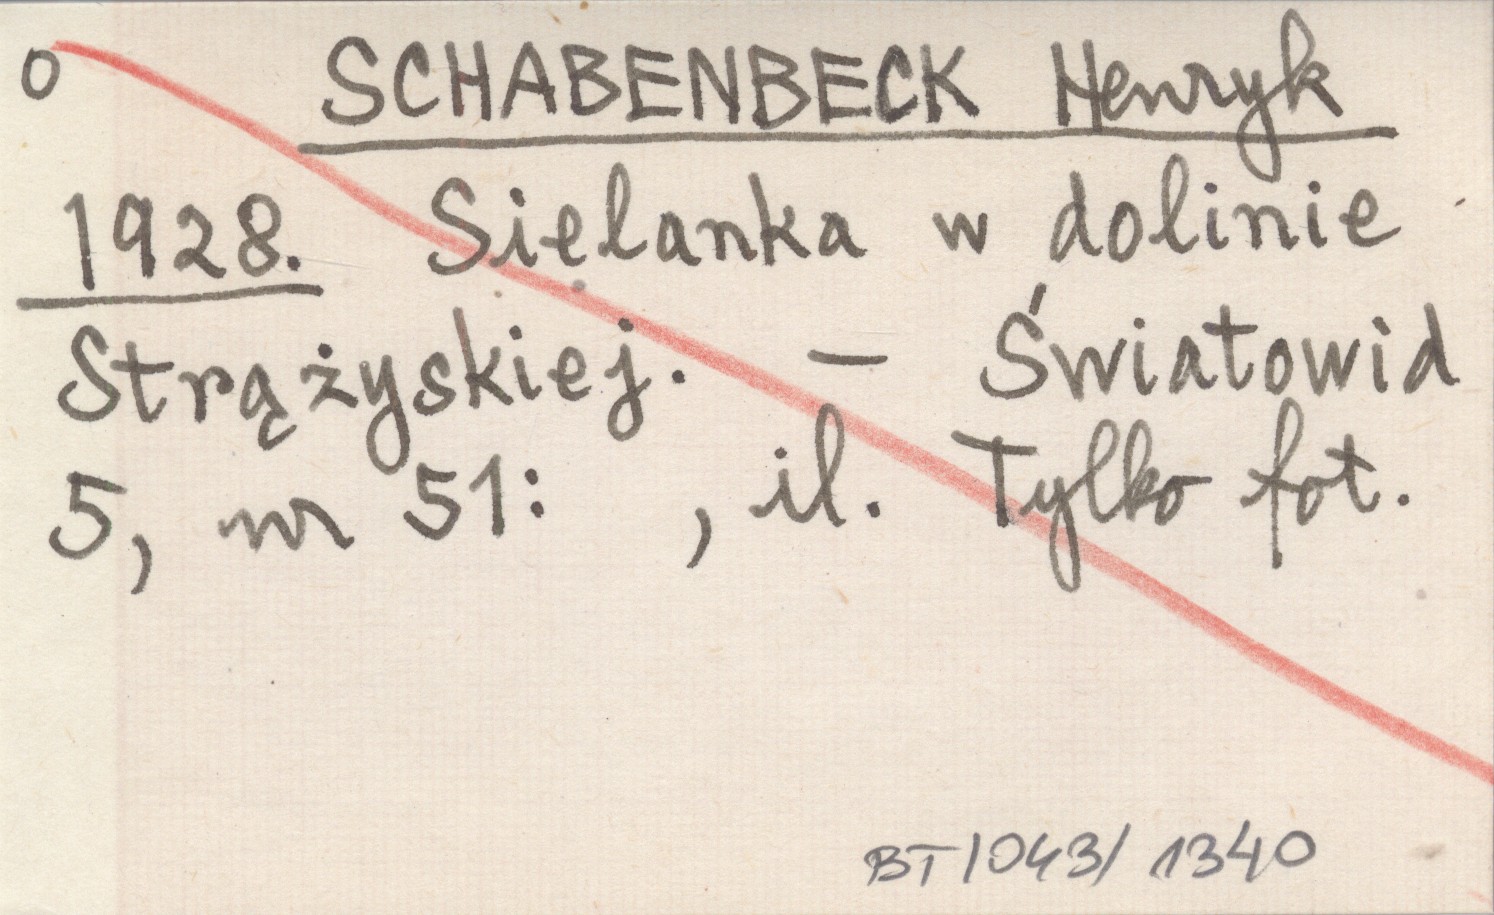 o SCHABENBECK Henryk
1928. Sielanka w dolinie
Strążyskiej. — Światowid
5, nr 51: , il. Tylko fot.
BT/043/1340